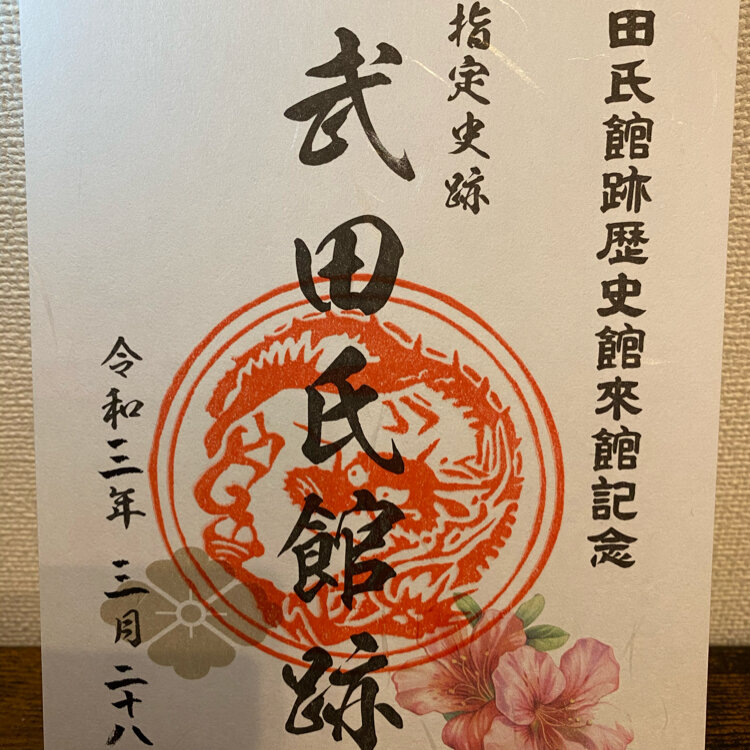 田氏館跡歴史館来館記念
指定史跡
武田氏館跡
令和三年 三月 二十八